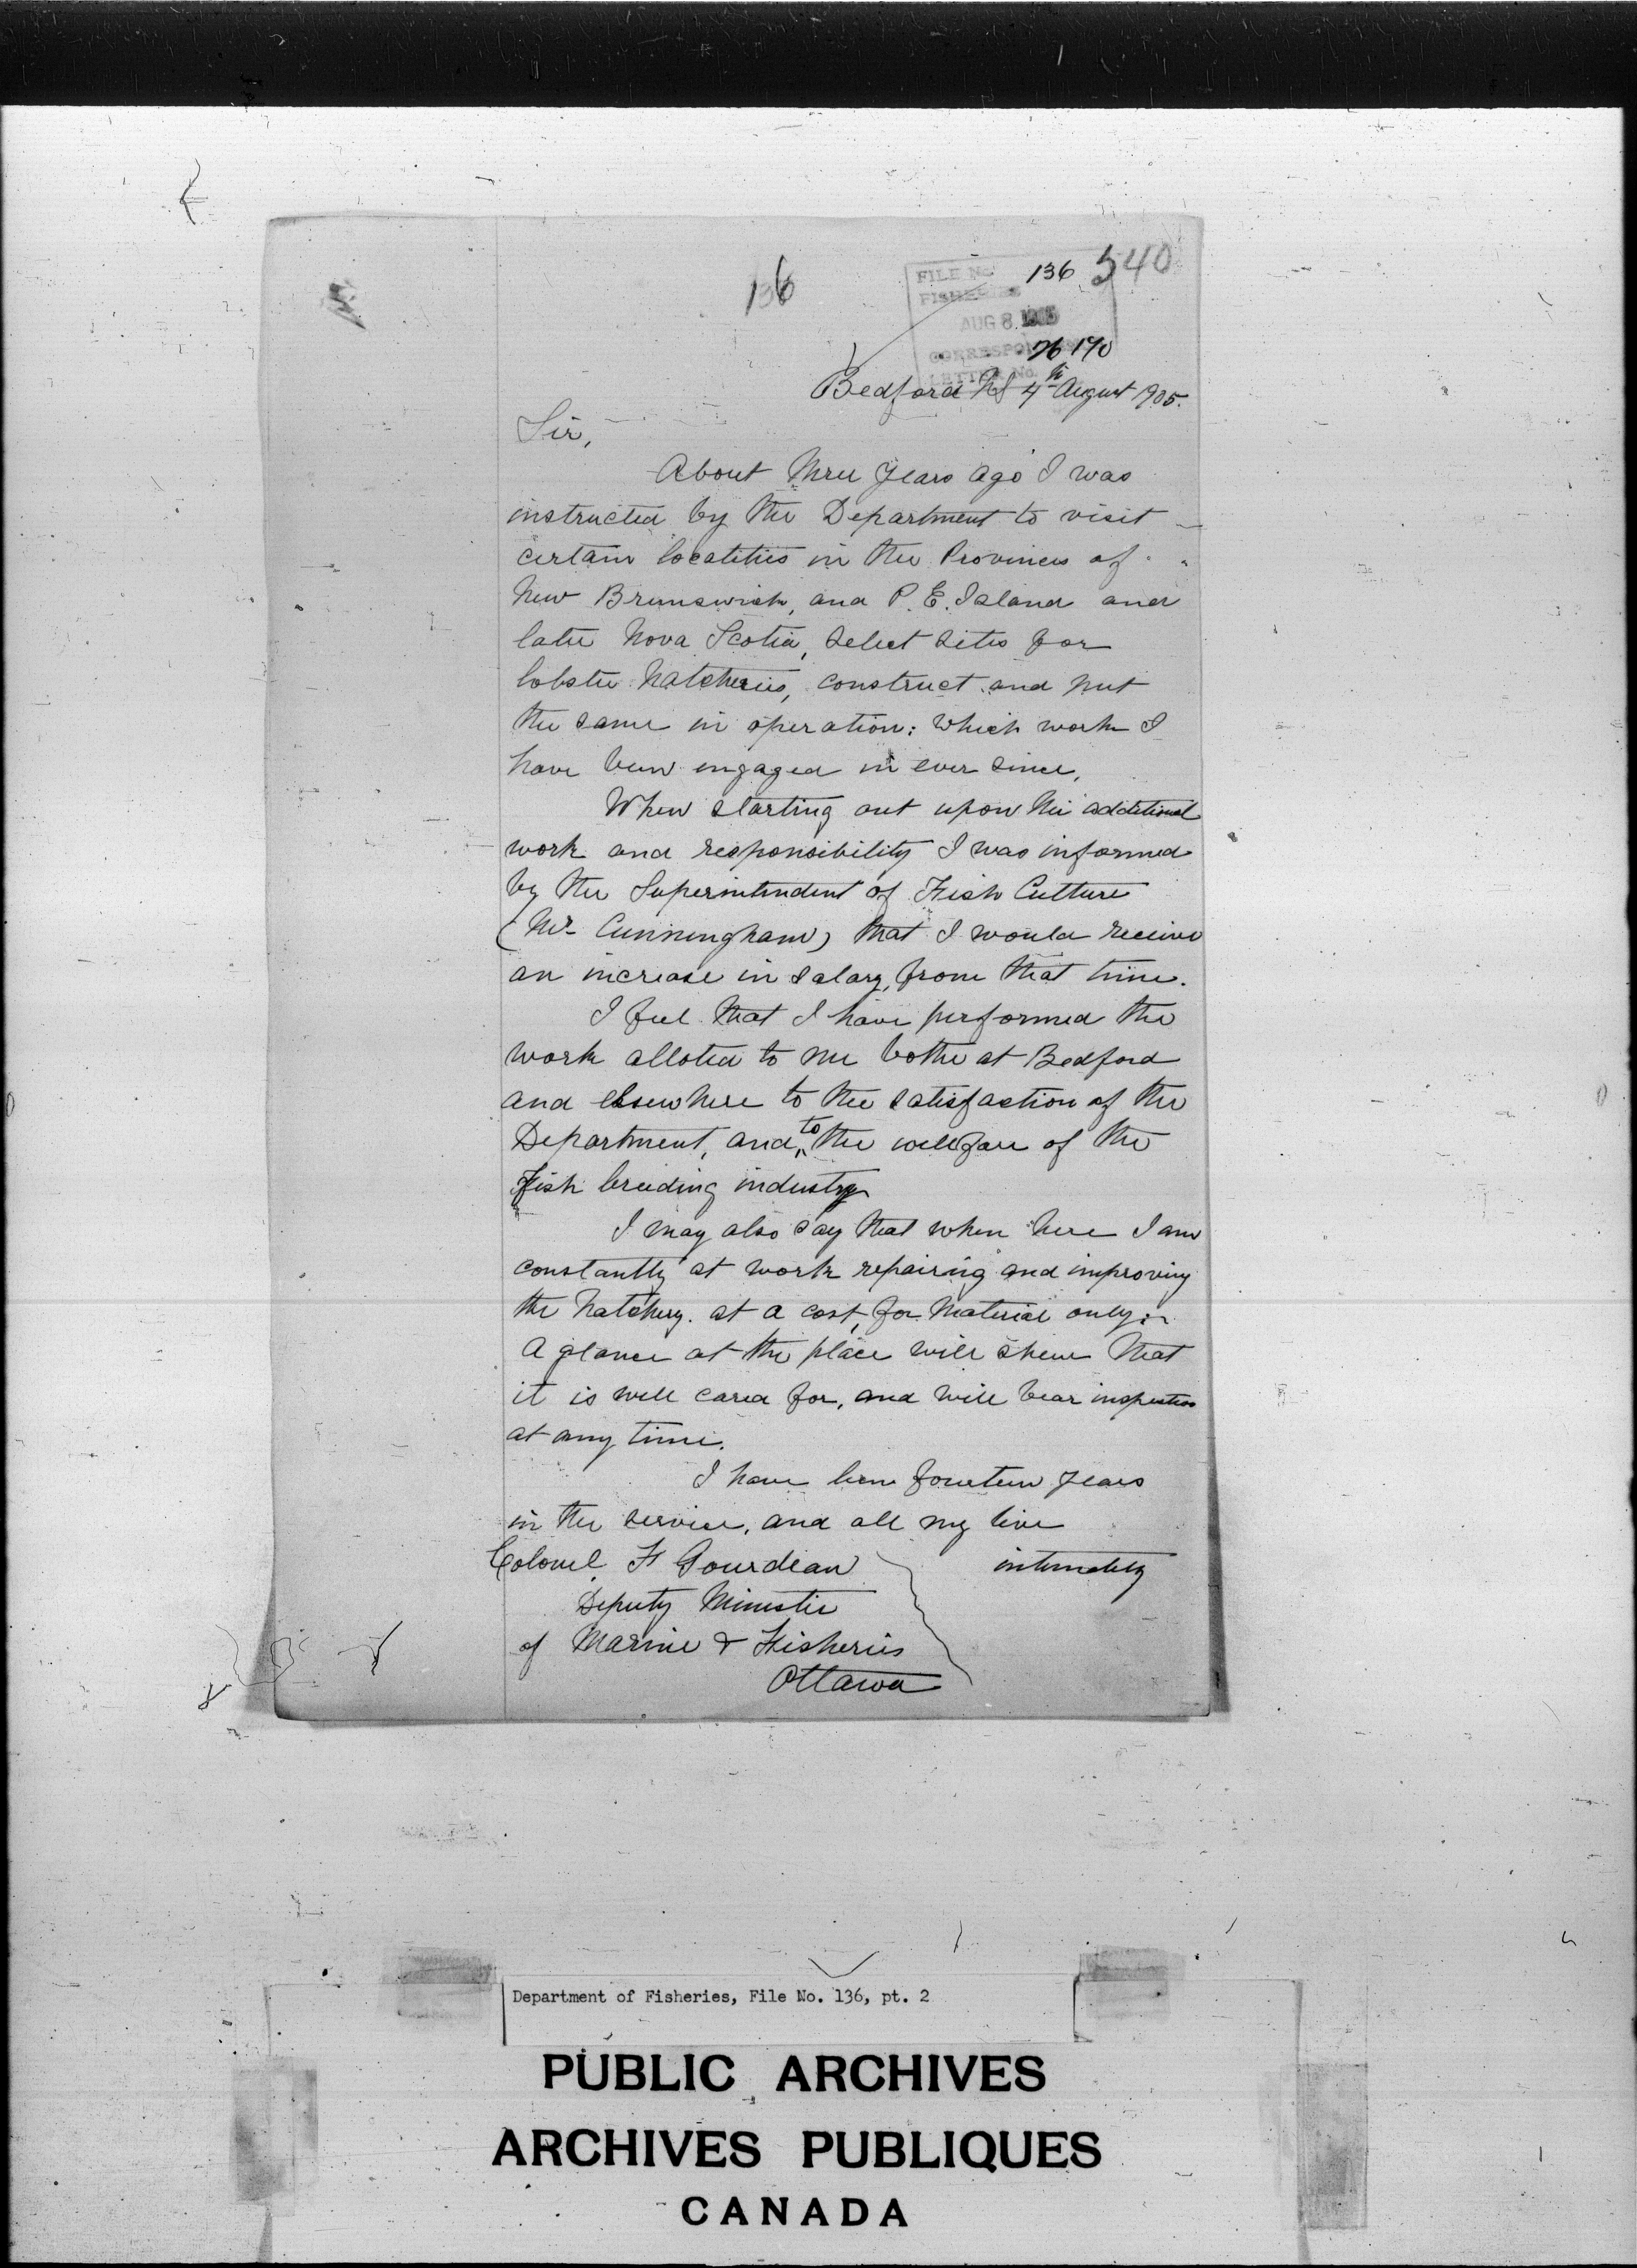 136
FILE No. 136 540
FISHERIES
AUG 8. 1905
CORRESPONDENCE 26170
LETTER No.
Bedford NS 4th August 1905.
Sir,
About three years ago I was
instructed by the Department to visit
certain localities in the Provinces of
New Brunswick, and P. E. Island and
later Nova Scotia, select sites for
lobster hatcheries, construct and put
the same in operation; which work I
have been engaged in ever since,
When starting out upon this additional
work and responsibility I was informed
by the Superintendent of Fish Culture
(Mr. Cunningham) that I would receive
an increase in salary, from that time.
I feel that I have performed the
work alloted to me bothe at Bedford
and elsewhere to the satisfaction of the
Department, and to the wellfare of the
Fish breeding industry
I may also say that when here I am
constantly at work repairing and improving
the hatchery. at a cost, for material only;
A glance at the place will shew that
it is well cared for, and will bear inspection
at any time.
I have been fourteen years
in the service, and all my time
Colonel F Gourdeau intimately
Deputy Minister
of Marine & Fisheries
Ottawa
Department of Fisheries, File No. 136, pt. 2
PUBLIC ARCHIVES
ARCHIVES PUBLIQUES
CANADA